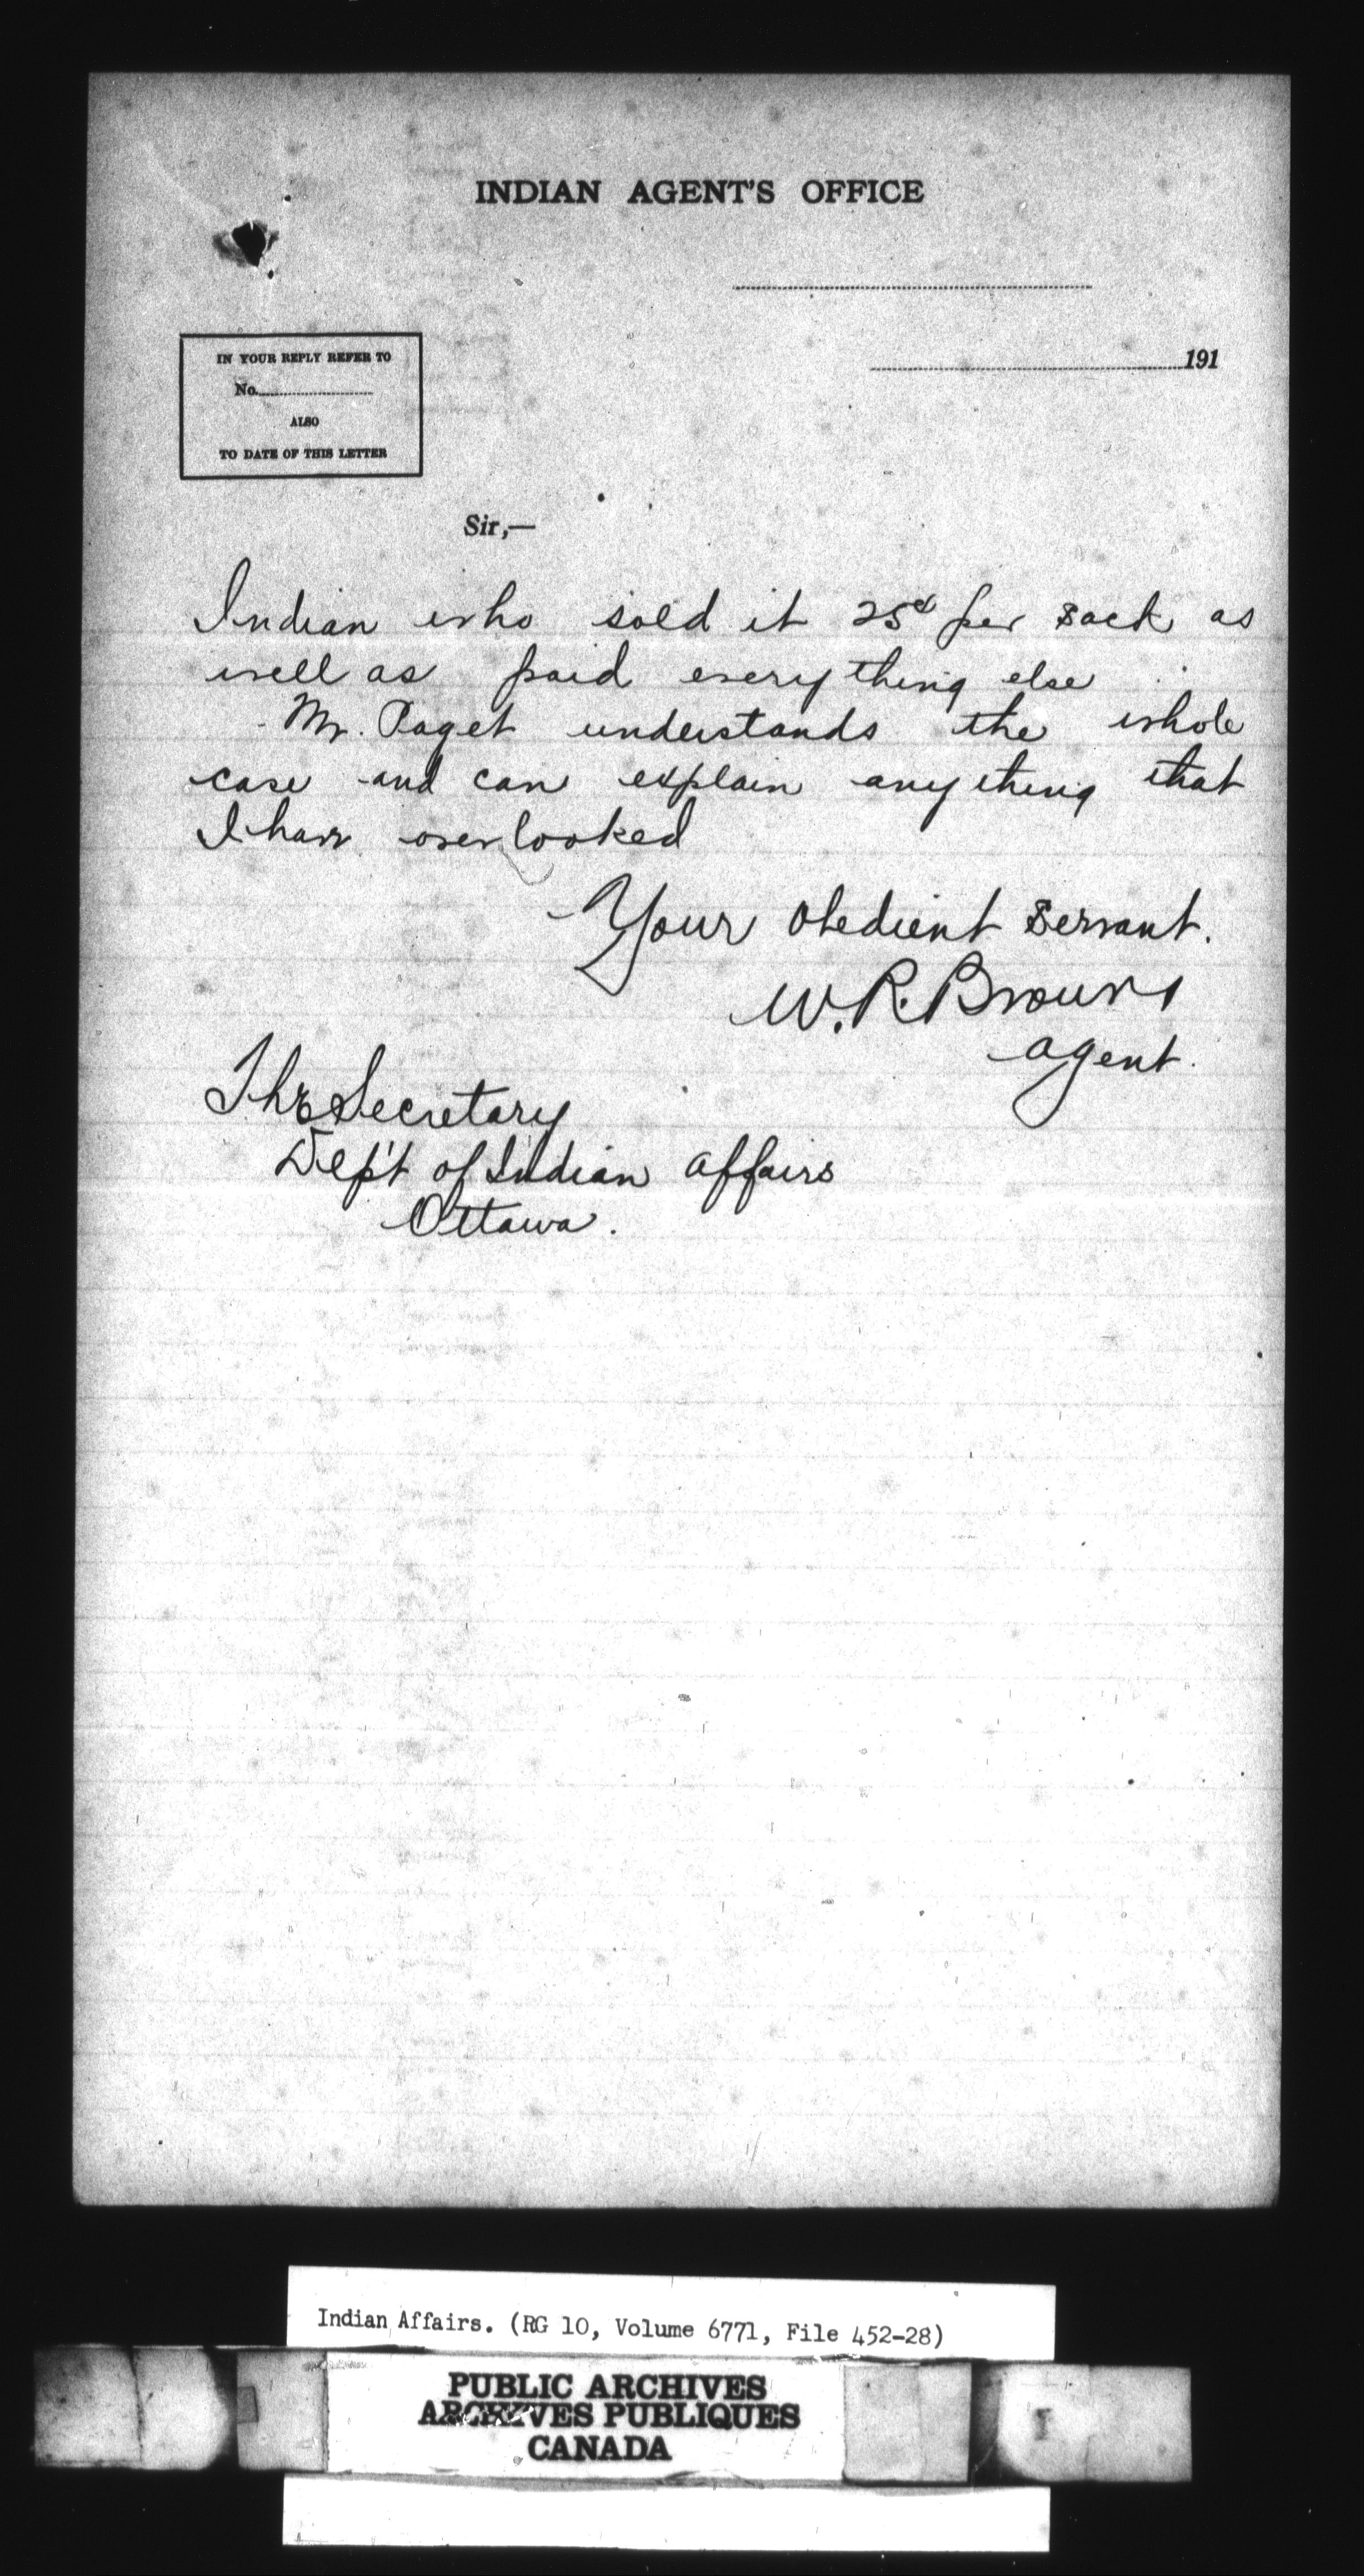 INDIAN AGENT'S OFFICE
191
IN YOUR REPLY REFER TO
No.
ALSO
TO DATE OF THIS LETTER
Sir,—
Indian who sold it 25¢ per sack as
well as paid everything else
Mr. Paget understands the whole
case and can explain anything that
I have overlooked
Your obedient servant.
W. R. Brown
agent.
The Secretary
Dep't of Indian Affairs
Ottawa.
Indian Affairs. (RG 10, Volume 6771, File 452-28)
PUBLIC ARCHIVES
ARCHIVES PUBLIQUES
CANADA